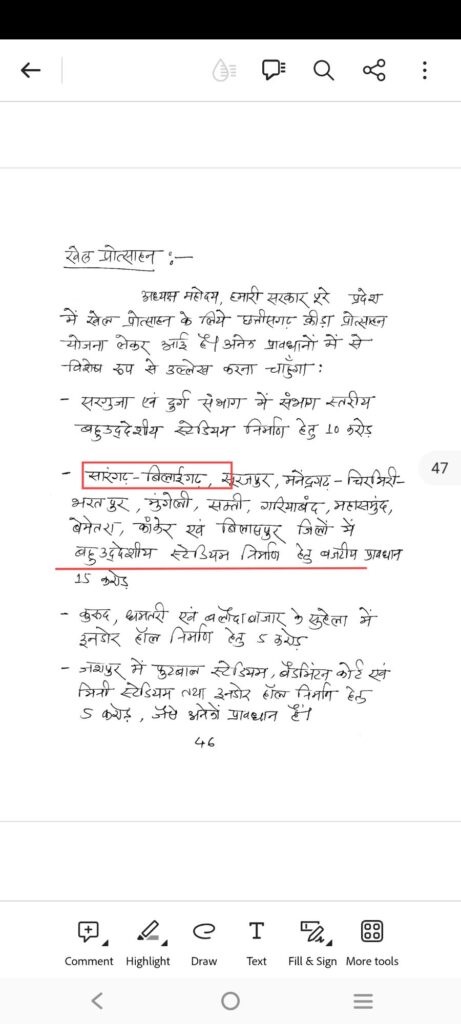 खेल प्रोत्साहन :—
अध्यक्ष महोदय, हमारी सरकार पूरे प्रदेश
में खेल प्रोत्साहन के लिये छत्तीसगढ़ क्रीड़ा प्रोत्साहन
योजना लेकर आई है। अनेक प्रावधानों में से
विशेष रूप से उल्लेख करना चाहूँगा :
- सरगुजा एवं दुर्ग संभाग में संभाग स्तरीय
बहुउद्देशीय स्टेडियम निर्माण हेतु 10 करोड़
- सारंगढ़-बिलाईगढ़, सूरजपुर, मनेंद्रगढ़-चिरमिरी-
47
भरतपुर, मुंगेली, सक्ती, गरियाबंद, महासमुंद,
बेमेतरा, काँकेर एवं बिलासपुर जिलों में
बहुउद्देशीय स्टेडियम निर्माण हेतु बजटीय प्रावधान
15 करोड़
- कुरुद, धमतरी एवं बलौदाबाजार के सुहेला में
इनडोर हॉल निर्माण हेतु 5 करोड़
- जशपुर में फुटबाल स्टेडियम, बैडमिंटन कोर्ट एवं
मिनी स्टेडियम तथा इनडोर हॉल निर्माण हेतु
5 करोड़, जैसे अनेकों प्रावधान हैं।
46
Comment Highlight Draw Text Fill & Sign More tools